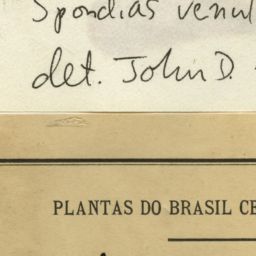 Spondias venul
det. John D.
PLANTAS DO BRASIL CE